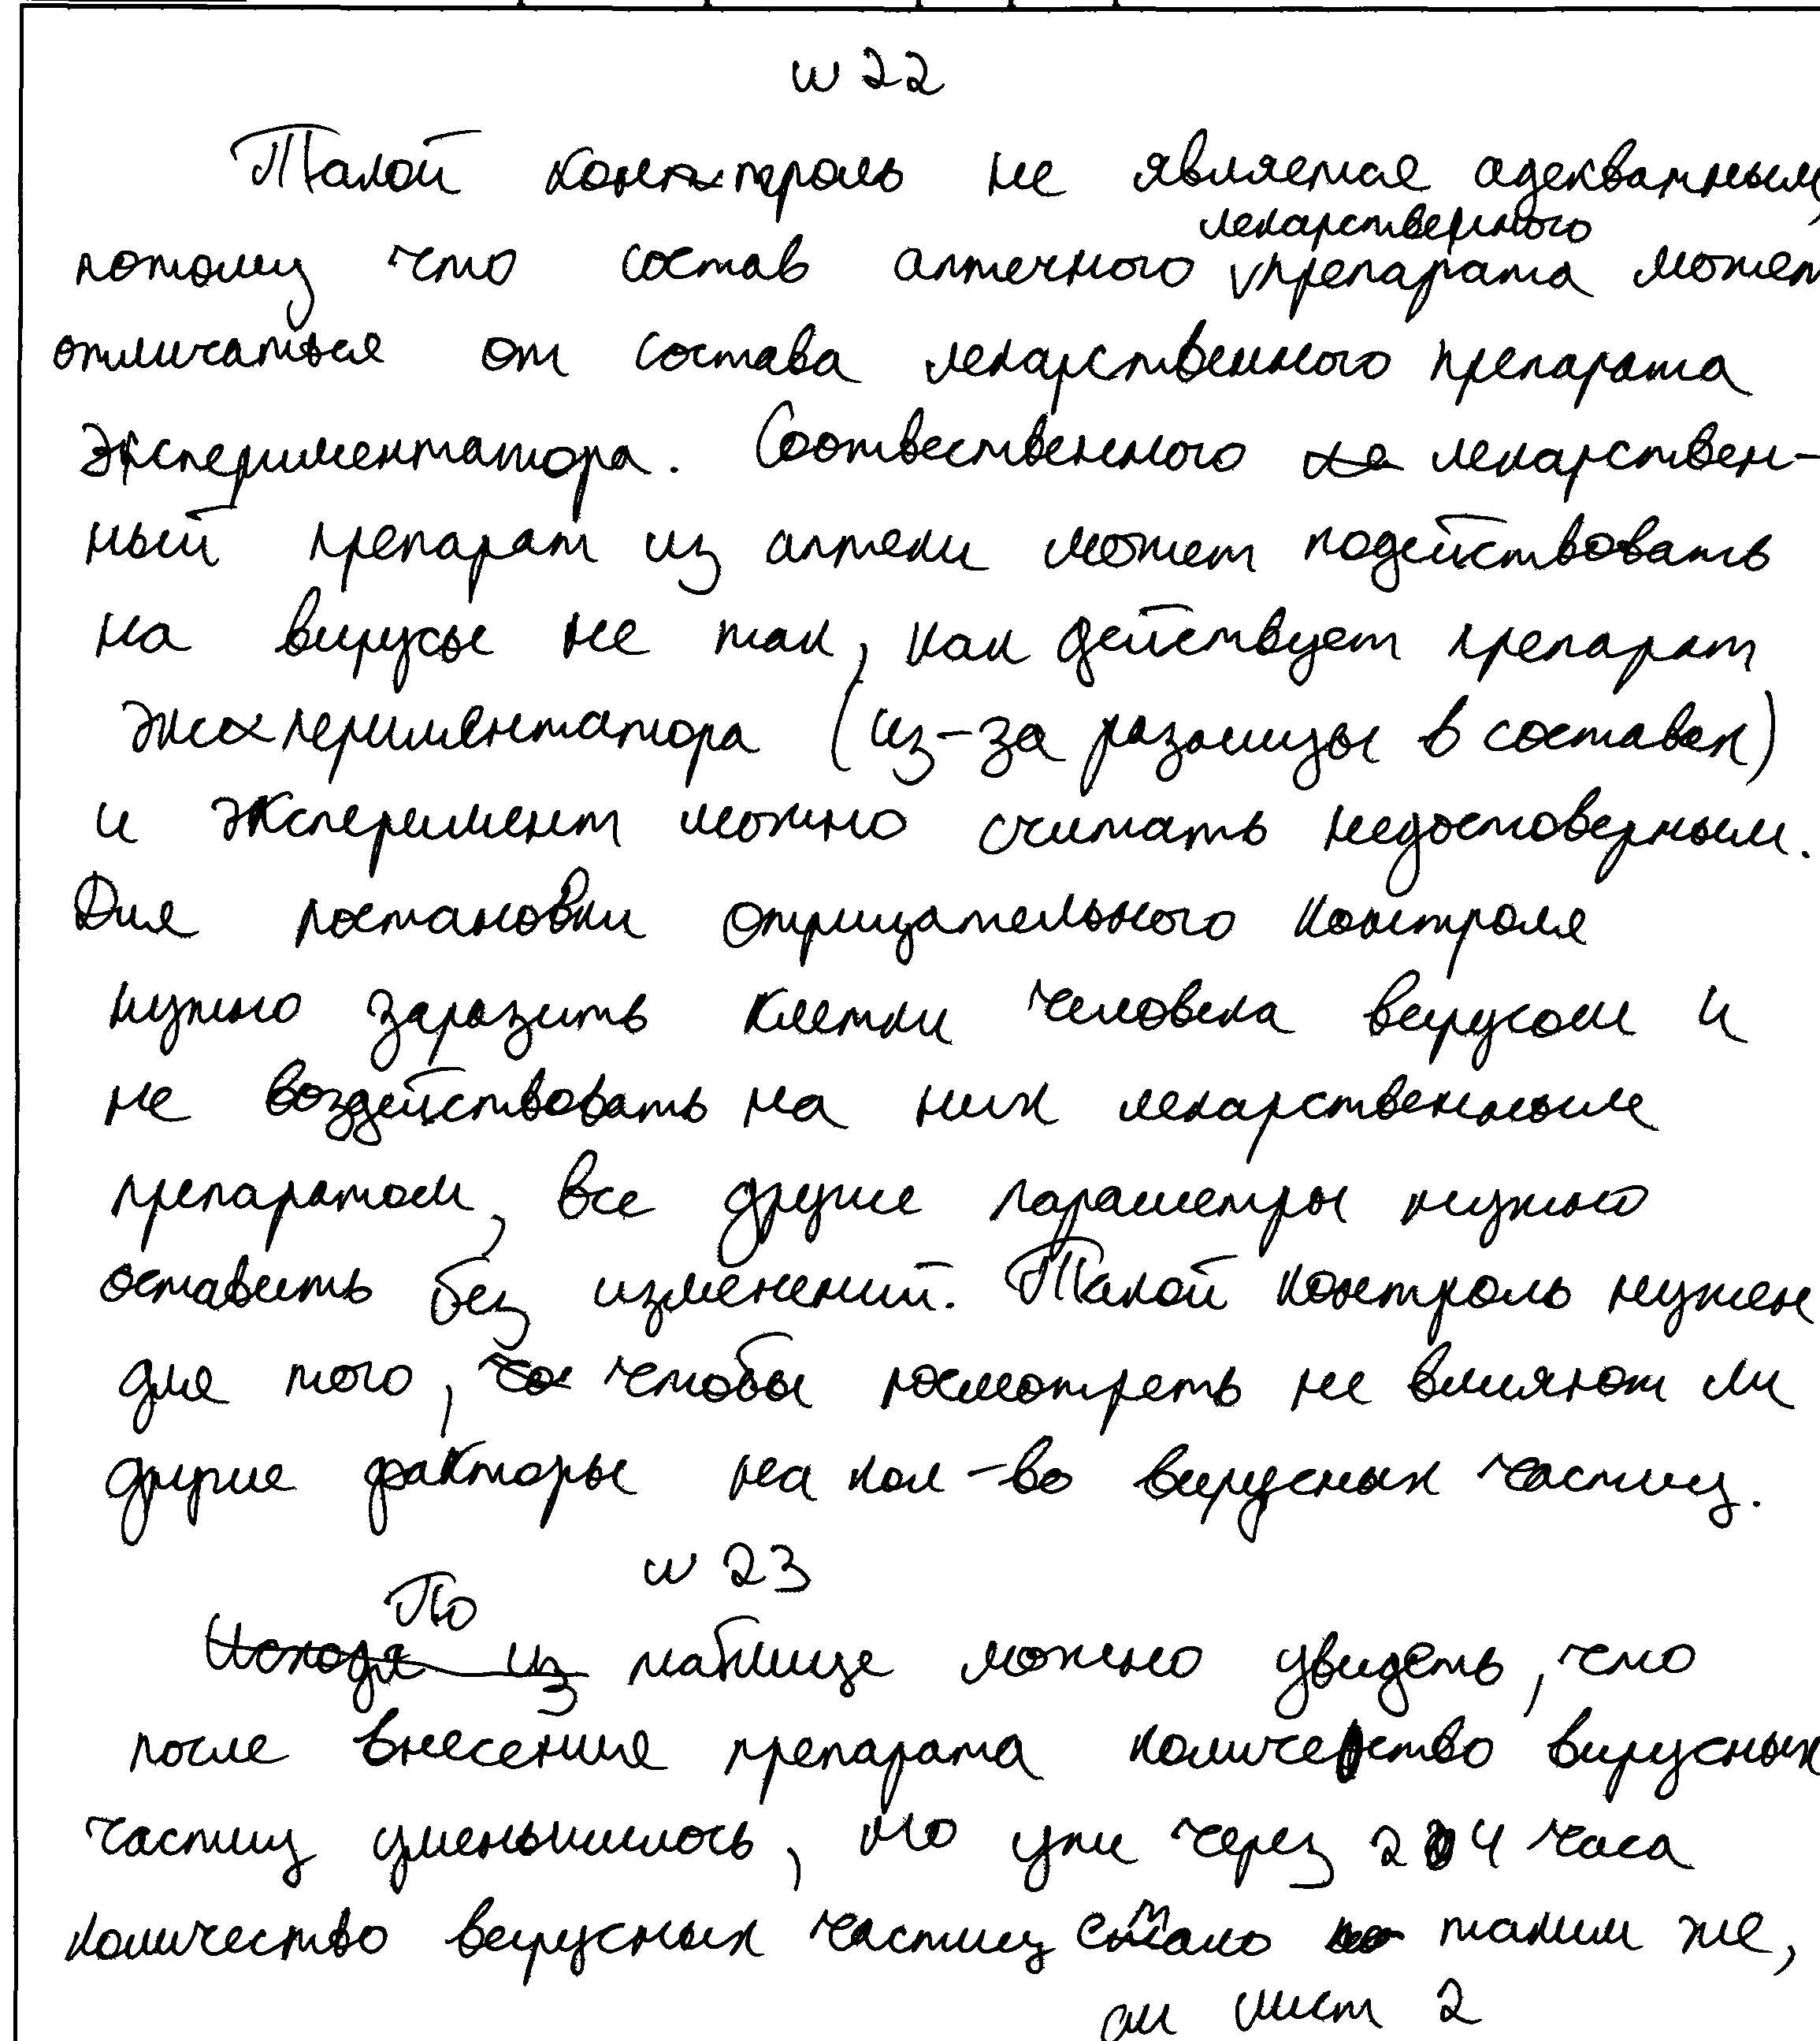 № 22
Такой контроль не является адекватным,
потому что состав аптечного лекарственного препарата может
отличаться от состава лекарственного препарата
экспериментатора. Соотвественного лекарствен-
ный препарат из аптеки может подействовать
на вирусы не так, как действует препарат
экспериментатора (из-за разницы в составах)
и эксперимент можно считать недостоверным.
Для постановки отрицательного контроля
нужно заразить клетки человека вирусом и
не воздействовать на них лекарственным
препаратом, все другие параметры нужно
оставить без изменений. Такой контроль нужен
для того, чтобы посмотреть не влияют ли
другие факторы на кол-во вирусных частиц.
№ 23
По таблице можно увидеть, что
после внесения препарата количество вирусных
частиц уменьшилось, но уже через 24 часа
количество вирусных частиц стало таким же,
см лист 2